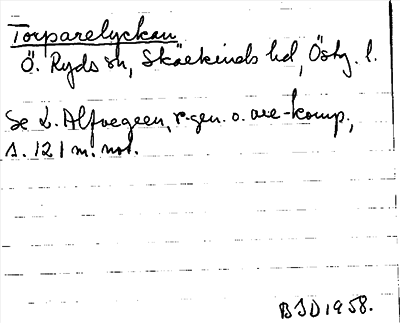 Torparelyckan
Ö. Ryds sn, Skärkinds hd, Östg. l.
Se L. Alfvegren, r-gen. o. are-komp.,
s. 121 m. not.
BJD 1958.